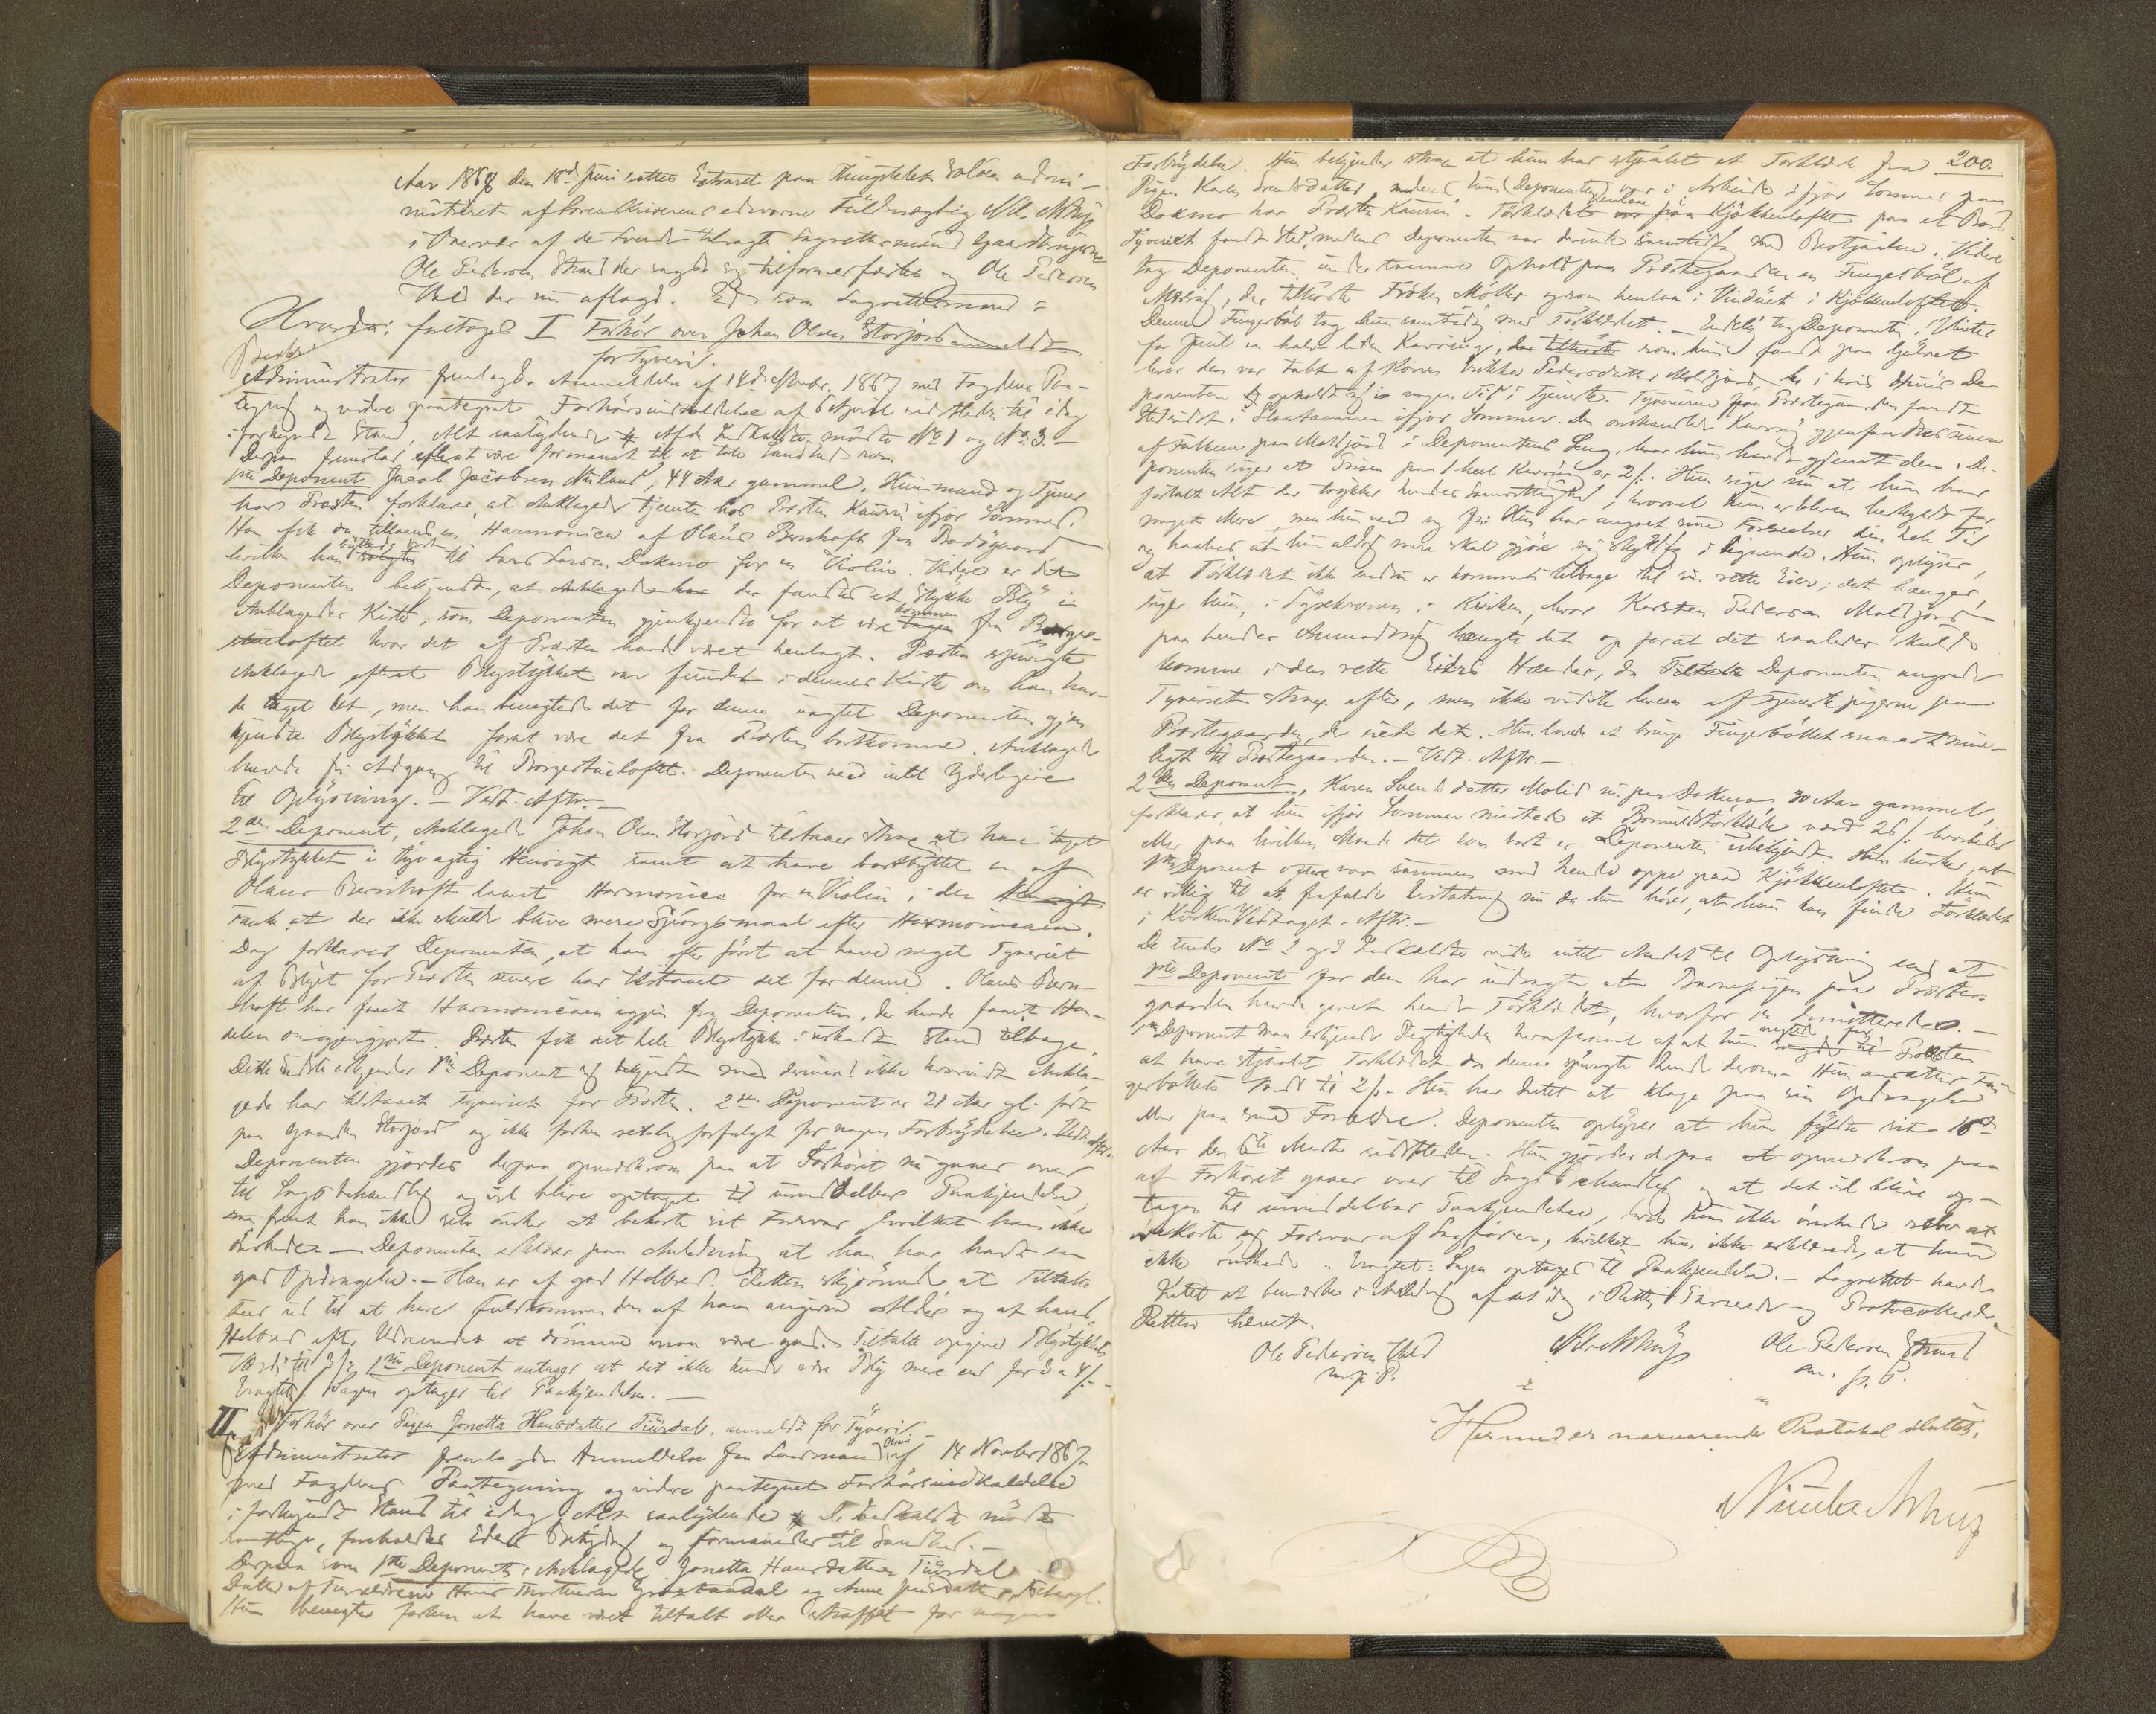 Aar 1868 den 18de Juni sattes Extraret paa Thingstedet Solöen admini-
nistreret af Sorenskriverens edsvorne Fuldmægtig Nils Astrup
i Overvær af de Lovede tilsagte Lagrettesmænd Gaardbrugerne
Ole Pedersen Strand der sagde sig tilforn erfaret og Ole Pedersen
Hals der nu aflagde Ed som Lagrettesmand =
Hvorda: foretoges I Forhör over Johan Olsen Storjord anmeldt
for Tyveri.
Administrator fremlagde Anmeldelse af 14de Novbr. 1867 med Fogdens Paa-
tegning og videre paategnet Forhörsindkaldelse af 6 April sidstleden til idag
i forkyndt Stand, Alt saalydende # Af de Indkaldte mödte No 1 og No 3. -
Derpaa fremstod efterat være formanet til at tale Sandhed som
1ste Deponent Jacob Jacobsen 44 Aar gammel, Huusmand og Tjener
hos Præsten forklarer, at Anklagede tjente hos Præsten Kaurin ifjor Sommer.
Han fik da tillaans en Harmonica af Olaus Bernhoft fra Bodögaard
hvilken han byttede bort til Lars Larsen Dokmo for en Violin. Videre er det
Deponenten bekjendt, at der fandtes et Stykke Bly i
Anklagedes Kiste, som Deponenten gjenkjendte for at være kommen fra Borge-
stueloftet hvor det af Præsten havde været henlagt. Præsten spurgte
Anklagede efterat Blystykket var fundet i dennes Kiste om han hav-
de taget det, men han benegtede det for denne uagtet Deponenten gjen-
kjendte Blystykket forat være det fra Præsten bortkomne. Anklagede
havde fri Adgang til Borgestueloftet. Deponenten veed intet Yderligere
til Oplysning. - Vedt. Aftr. -
2den Deponent, Anklagede Johan Olsen Storjord tilstaaer strax at have taget
Blystykket i tyvagtig Hensigt samt at have bortbyttet en af
Olaus Bernhoft laant Harmonica for en Violin, i den
Tanke at der ikke skulde blive mere Spörgsmaal efter Harmonicaen.
Dog forklarer Deponenten, at han efter först at have nægtet Tyveriet
af Blyet for Præsten senere har tilstaaet det for denne. Olaus Bern-
hoft har faaet Harmonicaen igjen fra Deponenten, der havde faaet Han-
delen omgjengjort. Præsten fik det hele Blystykke i uskadt Stand tilbage.
Dette sidste erkjender 1ste Deponent og bekjendt med derimod ikke hvorvidt Ankla-
gede har tilstaaet Tyveriet for Præsten. 2den Deponent er 21 Aar gl. födt
paa Gaarden Storjord og ikke forhen retslig forfulgt for nogen Forbrydelse. Vedt. Aftr.
Deponenten gjordes derpaa opmærksom paa at Forhöret nu gaaer over
til Sagsbehandling og vil blive optaget til umiddelbar Paakjendelse,
saa fremt han ikke selv önsker at bekoste sit Forsvar hvilket han ikke
önskede - Deponenten erklærer paa Anledning at han har havt en
god Opdragelse. - Han er af god Helbred. Retten skjönnede at Tiltalte
seer ud til at have fuldkommen den af ham angivne Alder og at hans
Helbred efter Udseendet at dömme maa være god. Tiltalte opgiver Blystykkets
Værdi til 2/-; 1ste Deponent antager at det ikke kunde være Bly mere end for 3 a 4/- -
Eragtet: Sagen optages til Paakjendelse. -
II Forhör over Pigen Jonetta Hansdatter Tüvsdal, anmeldt for Tyveri -
Administrator fremlagde Anmeldelse fra Lensmand af 14 Novber 1867
med Fogdens Paategning og videre paategnet Forhörsindkaldelse
i forkyndt Stand til idag Alt saalydende # De Indkaldte mödte
samtlige, foreholdtes Edens Betydning og formanedes til Sandhed. -
Derpaa som 1ste Deponent, Anklagede Jonetta Hansdatter
Datter af Forældrene Hans og Anne
Hun benegter forhen at have været tiltalt eller straffet for nogen
200.
Forbrydelse. Hun bekjender strax at hun har stjaalet et Törklæde fra
Pigen Karen Svendsdatter, medens hun (Deponenten) var i Arbeide ifjor Sommer paa
Dokmo hos Præsten Kaurin. Törklædet henlaa paa Kjökkenloftet paa et Bord
Tyveriet fandt Sted, medens Deponenten var derinde samtidig med Bestjaalne. Videre
tog Deponenten under samme Ophold paa Præstegaarden en Fingerböl af
Messing, der tilhörte Fröken Möller og som henlaa i Vinduet i Kjökkenloftet.
Denne Fingerböl tog hun samtidig med Törklædet. - Endelig tog Deponenten i Vinter
för Juul en halv liden Kavring, der tilhörte som hun fandt paa Gulvet
hvor den var tabt af Konen Pedersdatter Moldjord, i hvis Huus De-
ponenten opholdt sig nogen Tid i Tjeneste. Tyverierne paa Præstegaarden fandt
Sted sidst i Slaataannen ifjor Sommer. Den omhandlede Kavring gjenfandtes senere
af Folkene paa Moldjord i Deponentens Seng, hvor hun havde gjemt den. De-
ponenten siger at Prisen paa 1 heel Kavring er 2/-. Hun siger nu at hun har
fortalt Alt der trykker hendes Samvittighed, hvorvel hun er bleven beskyldt for
noget Mere, men hun ved sig fri. Hun har angret sine Forseelser den hele Tid
og haaber, at hun aldrig mere skal gjöre sig skyldig i Lignende. Hun oplyser,
at Törklædet ikke endnu er kommet tilbage til sin rette Eier; det hænger,
siger hun, i Lysekronen i Kirken, hvor Karsten Pedersen Moldjord
paa hendes Anmodning hængte det op forat det saaledes skulde
komme i den rette Eiers Hænder, da Deponenten angrede
Tyveriet strax efter, men ikke vidste hvem af Tjenestepigerne paa
Præstegaarden, der eiede det. Hun lovede at bringe Fingerböllet snarest mue-
ligt til Præstegaarden. - Vedt. Aftr. -
2den Deponent, Karen Svendsdatter Molid nu paa Dokmo 30 Aar gammel,
forklarer, at hun ifjor Sommer mistede et Bomuldstörklæde værd 26/-
paa hvilken Maade det kom bort er Deponenten ubekjendt. Hun husker, at
1ste Deponent oftere var sammen med hende oppe paa Kjökkenloftet. Hun
er villig til at frafalde Erstatning nu da hun hörer, at hun kan finde Törklædet
i Kirken. Vedtaget. Aftr. -
De under No 2 og 3 Indkaldte vidste intet Andet til Oplysning end at
1ste Deponent for dem har udsagt, at Barnepigen paa Præste-
gaarden havde givet hende Törklædet, hvorfor de dimitteredes. -
1ste Deponent maa erkjende Rigtigheden heraf samt af at hun negtede for Præsten
at have stjaalet Törklædet da denne spurgte hende derom - Hun ansætter Fin-
gerböllets Værdi til 2/-. Hun har Intet at klage paa sin Opdragelse
eller paa sine Forældre. Deponenten oplyser at hun fyldte sit 18de
Aar den 6te Marts sidstleden. Hun gjordes d paa at opmærksom paa
at Forhöret gaaer over til Sagsbehandling og at det vil blive op-
tagen til umiddelbar Paakjendelse, hvis hun ikke önskede selv at
bekoste sig Forsvar af Sagförer, hvilket hun ikke erklærede, at hun
ikke önskede. Eragtet: Sagen optages til Paakjendelse. - Lagrettet havde
Intet at bemærke i Anledning af det idag i Retten Passerede og Protocollerede.
Retten hævet.
Ole Pedersen Hals Nils Astrup Ole Pedersen Strand
m. p. P. m. p. P.
Hermed er nærværende Protokol sluttet.
Astrup